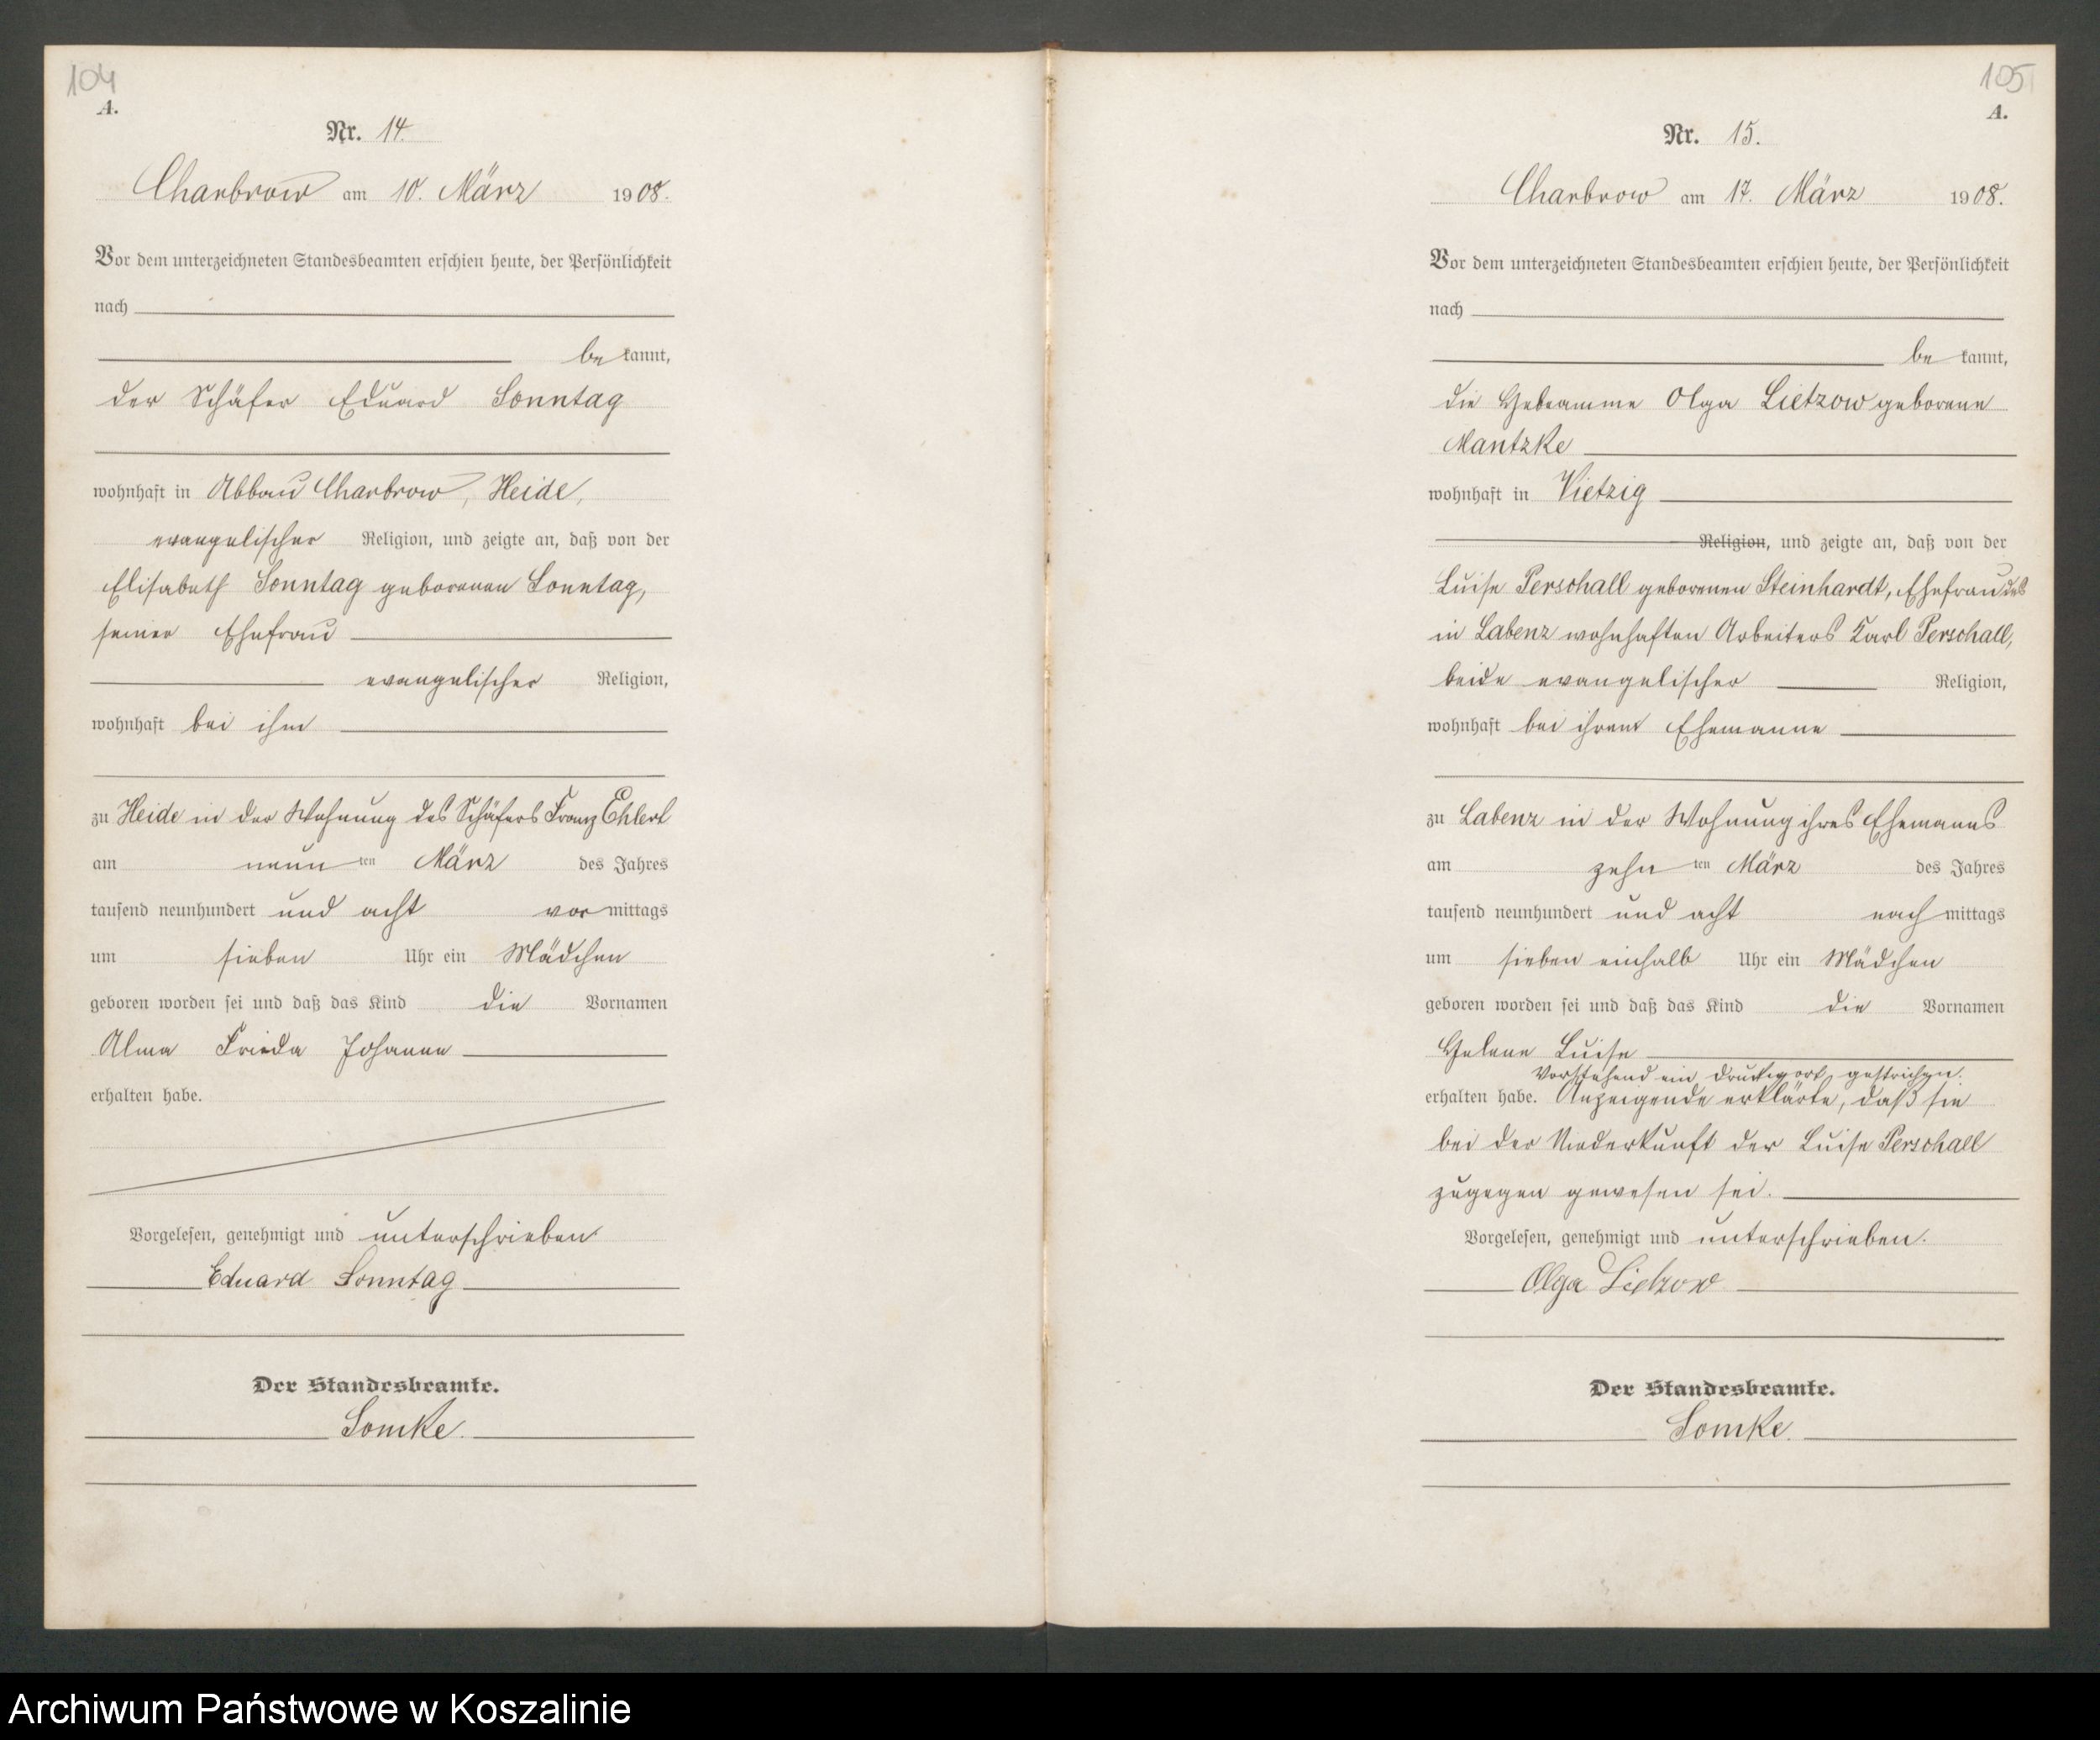 104
A.
Nr. 14.
Charbrow am 10. März 1908.
Vor dem unterzeichneten Standesbeamten erschien heute, der Persönlichkeit
nach
be kannt,
der Schäfer Eduard Sonntag
wohnhaft in Abbau Charbrow, Heide,
evangelischer Religion, und zeigte an, daß von der
Elisabeth Sonntag geborenen Sonntag,
seiner Ehefrau
evangelischer Religion,
wohnhaft bei ihm
zu Heide in der Wohnung des Schäfers Franz Ehlert
am neun ten März des Jahres
tausend neunhundert und acht vor mittags
um sieben Uhr ein Mädchen
geboren worden sei und daß das Kind die Vornamen
Alma Frieda Johanne
erhalten habe.
Vorgelesen, genehmigt und unterschrieben
Eduard Sonntag
Der Standesbeamte.
Lomke.
105
A.
Nr. 15.
Charbrow am 17. März 1908.
Vor dem unterzeichneten Standesbeamten erschien heute, der Persönlichkeit
nach
be kannt,
die Hebeamme Olga Lietzow geborene
Mantzke
wohnhaft in Vietzig
Religion, und zeigte an, daß von der
Luise Perschall geborenen Steinhardt, Ehefrau des
in Labenz wohnhaften Arbeiters Karl Perschall,
beide evangelischer Religion,
wohnhaft bei ihrem Ehemanne
zu Labenz in der Wohnung ihres Ehemanns
am zehn ten März des Jahres
tausend neunhundert und acht nach mittags
um sieben einhalb Uhr ein Mädchen
geboren worden sei und daß das Kind die Vornamen
Helene Luise
Vorstehend ein Druckwort gestrichen.
erhalten habe. Anzeigende erklärte, daß sie
bei der Niederkunft der Luise Perschall
zugegen gewesen sei.
Vorgelesen, genehmigt und unterschrieben.
Olga Lietzow
Der Standesbeamte.
Lomke.
Archiwum Państwowe w Koszalinie